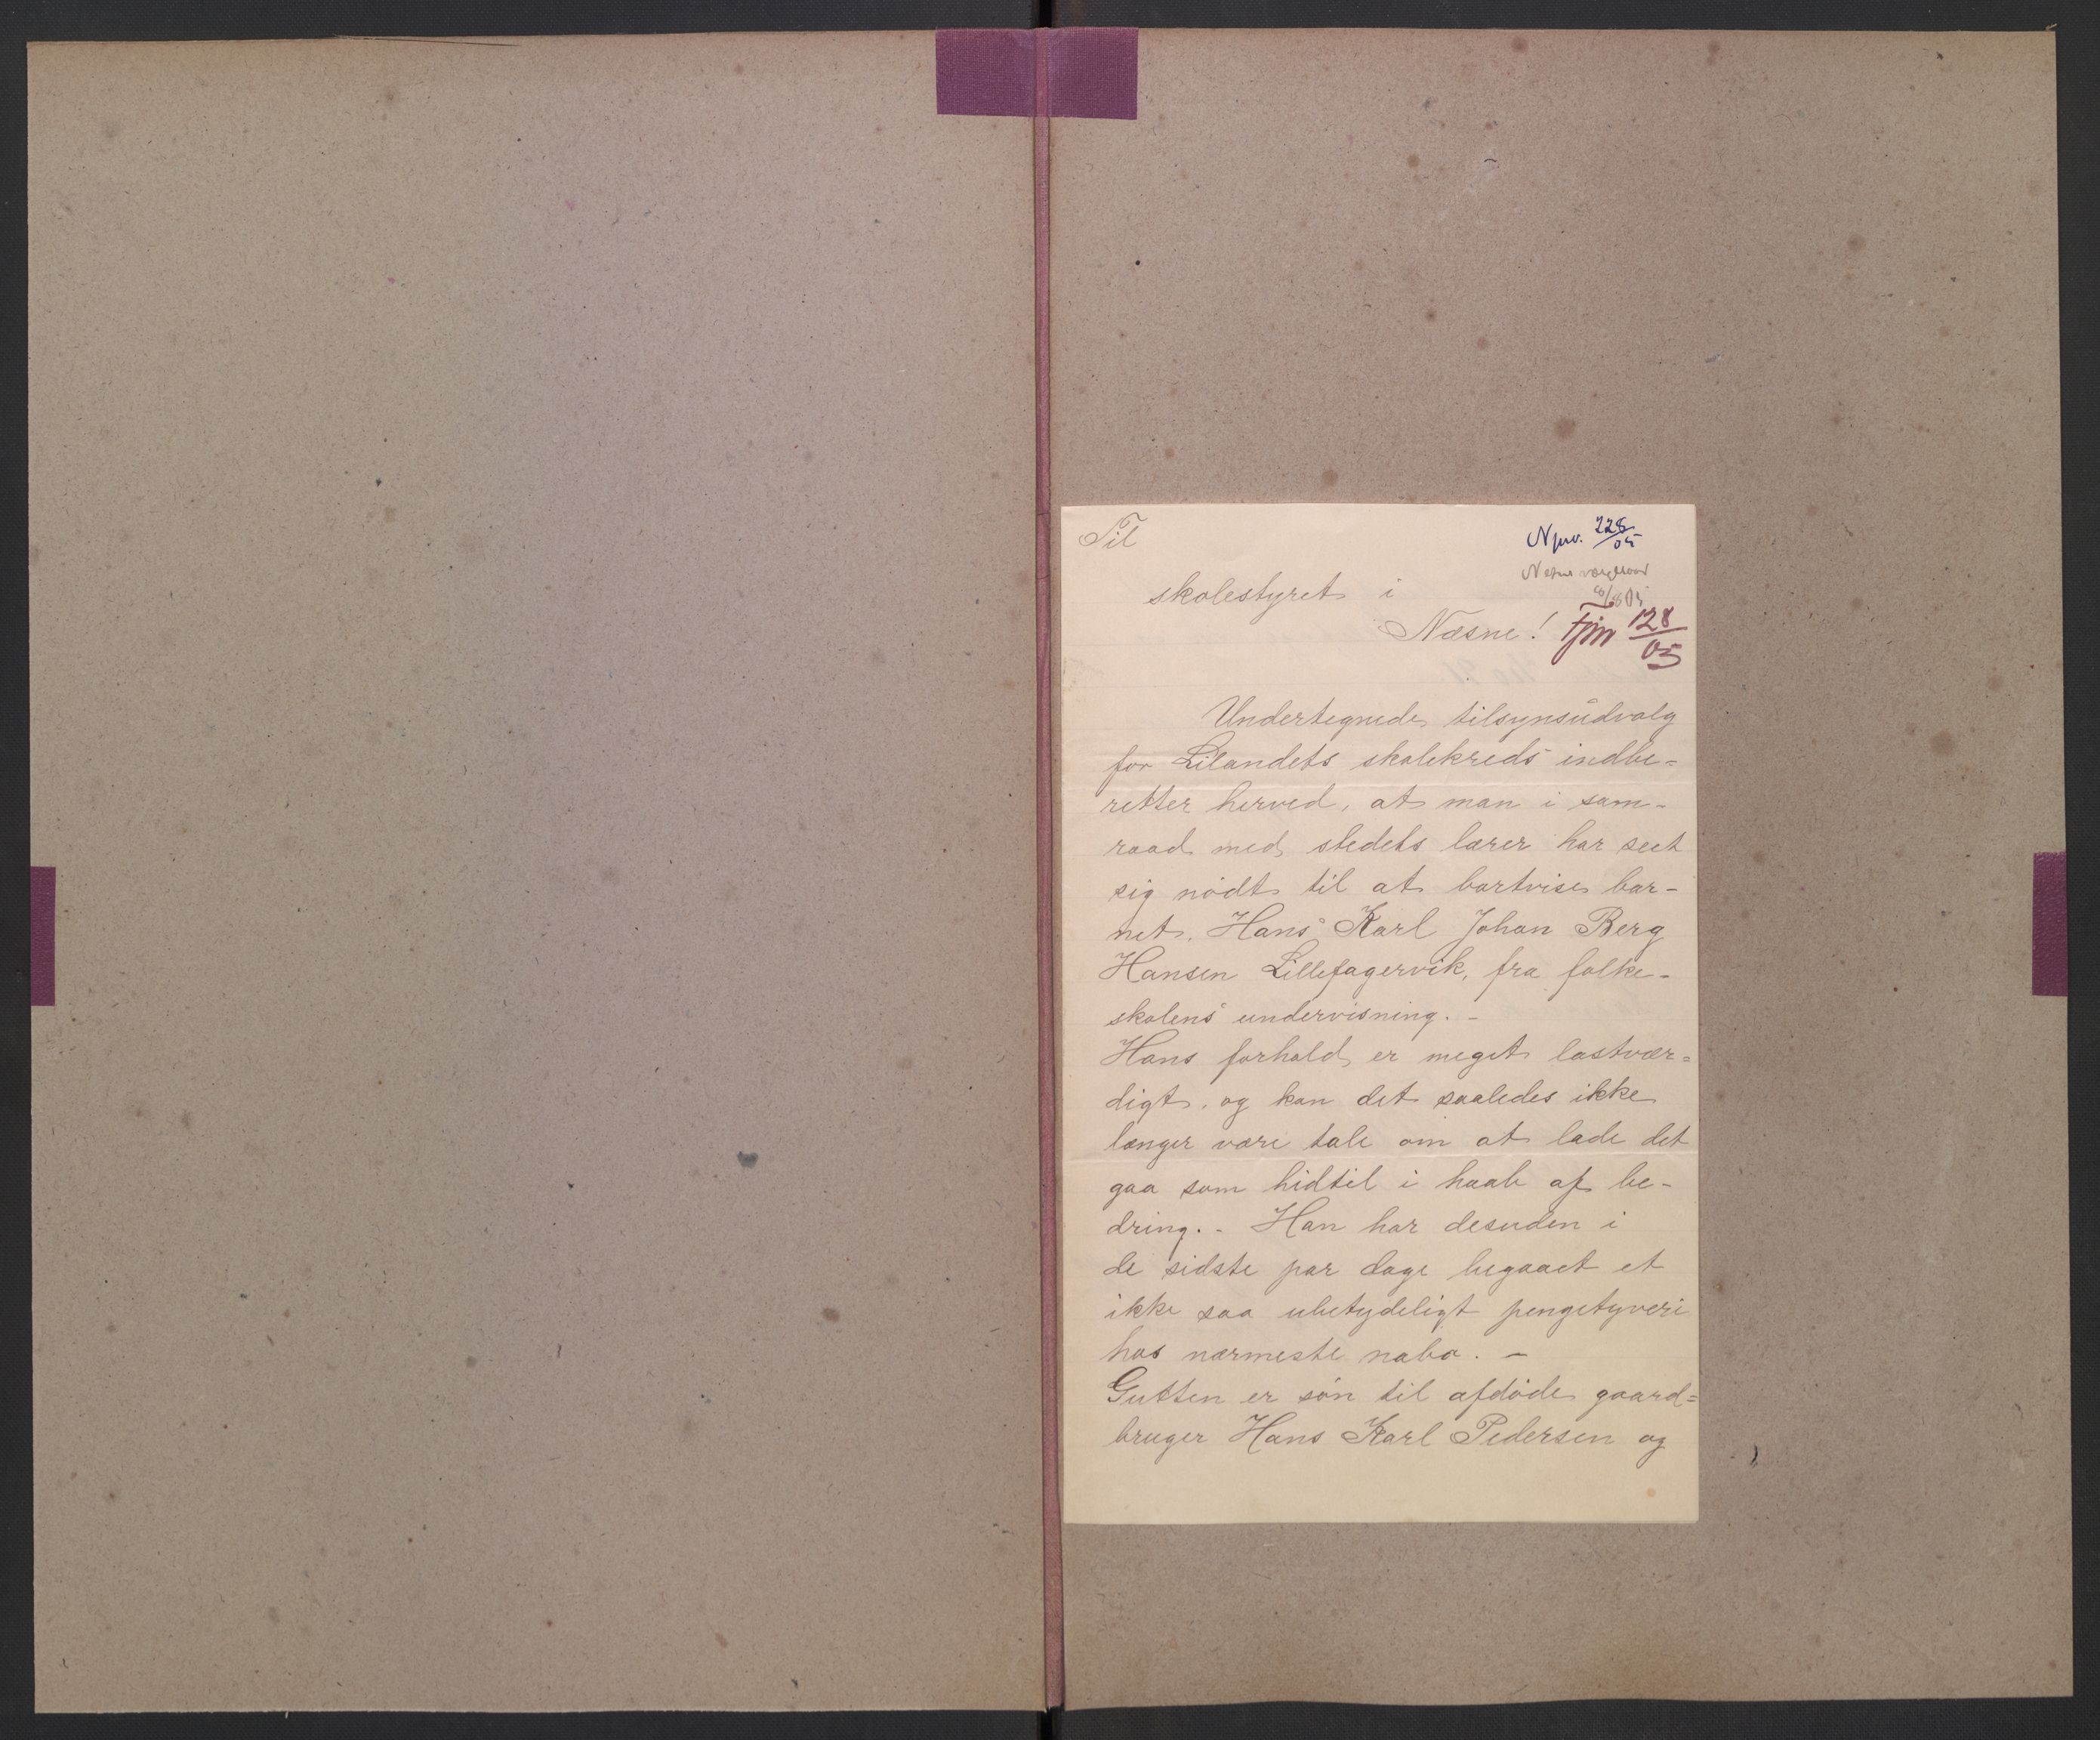 Til
Npr. 228/05
Næsne værgeraad
/8 05
skolestyret i
Næsne!
Fjm 128/05
Undertegnede tilsynsùdvalg
for Lilandets skolekreds indbe=
retter herved, at man i sam-
raad med stedets lærer har seet
sig nödt til at bortvise bar-
net, Hans Karl Johan Berg
Hansen Lillefagervik, fra folke-
skolens undervisning. -
Hans forhold er meget lastvær=
digt, og kan det saaledes ikke
længer være tale om at lade det
gaa som hidtil i haab af be-
dring. - Han har desuden i
de sidste par dage begaaet et
ikke saa ubetydeligt pengetyveri
hos nærmeste nabo. -
Gutten er sön til afdöde gaard=
bruger Hans Karl Pedersen og